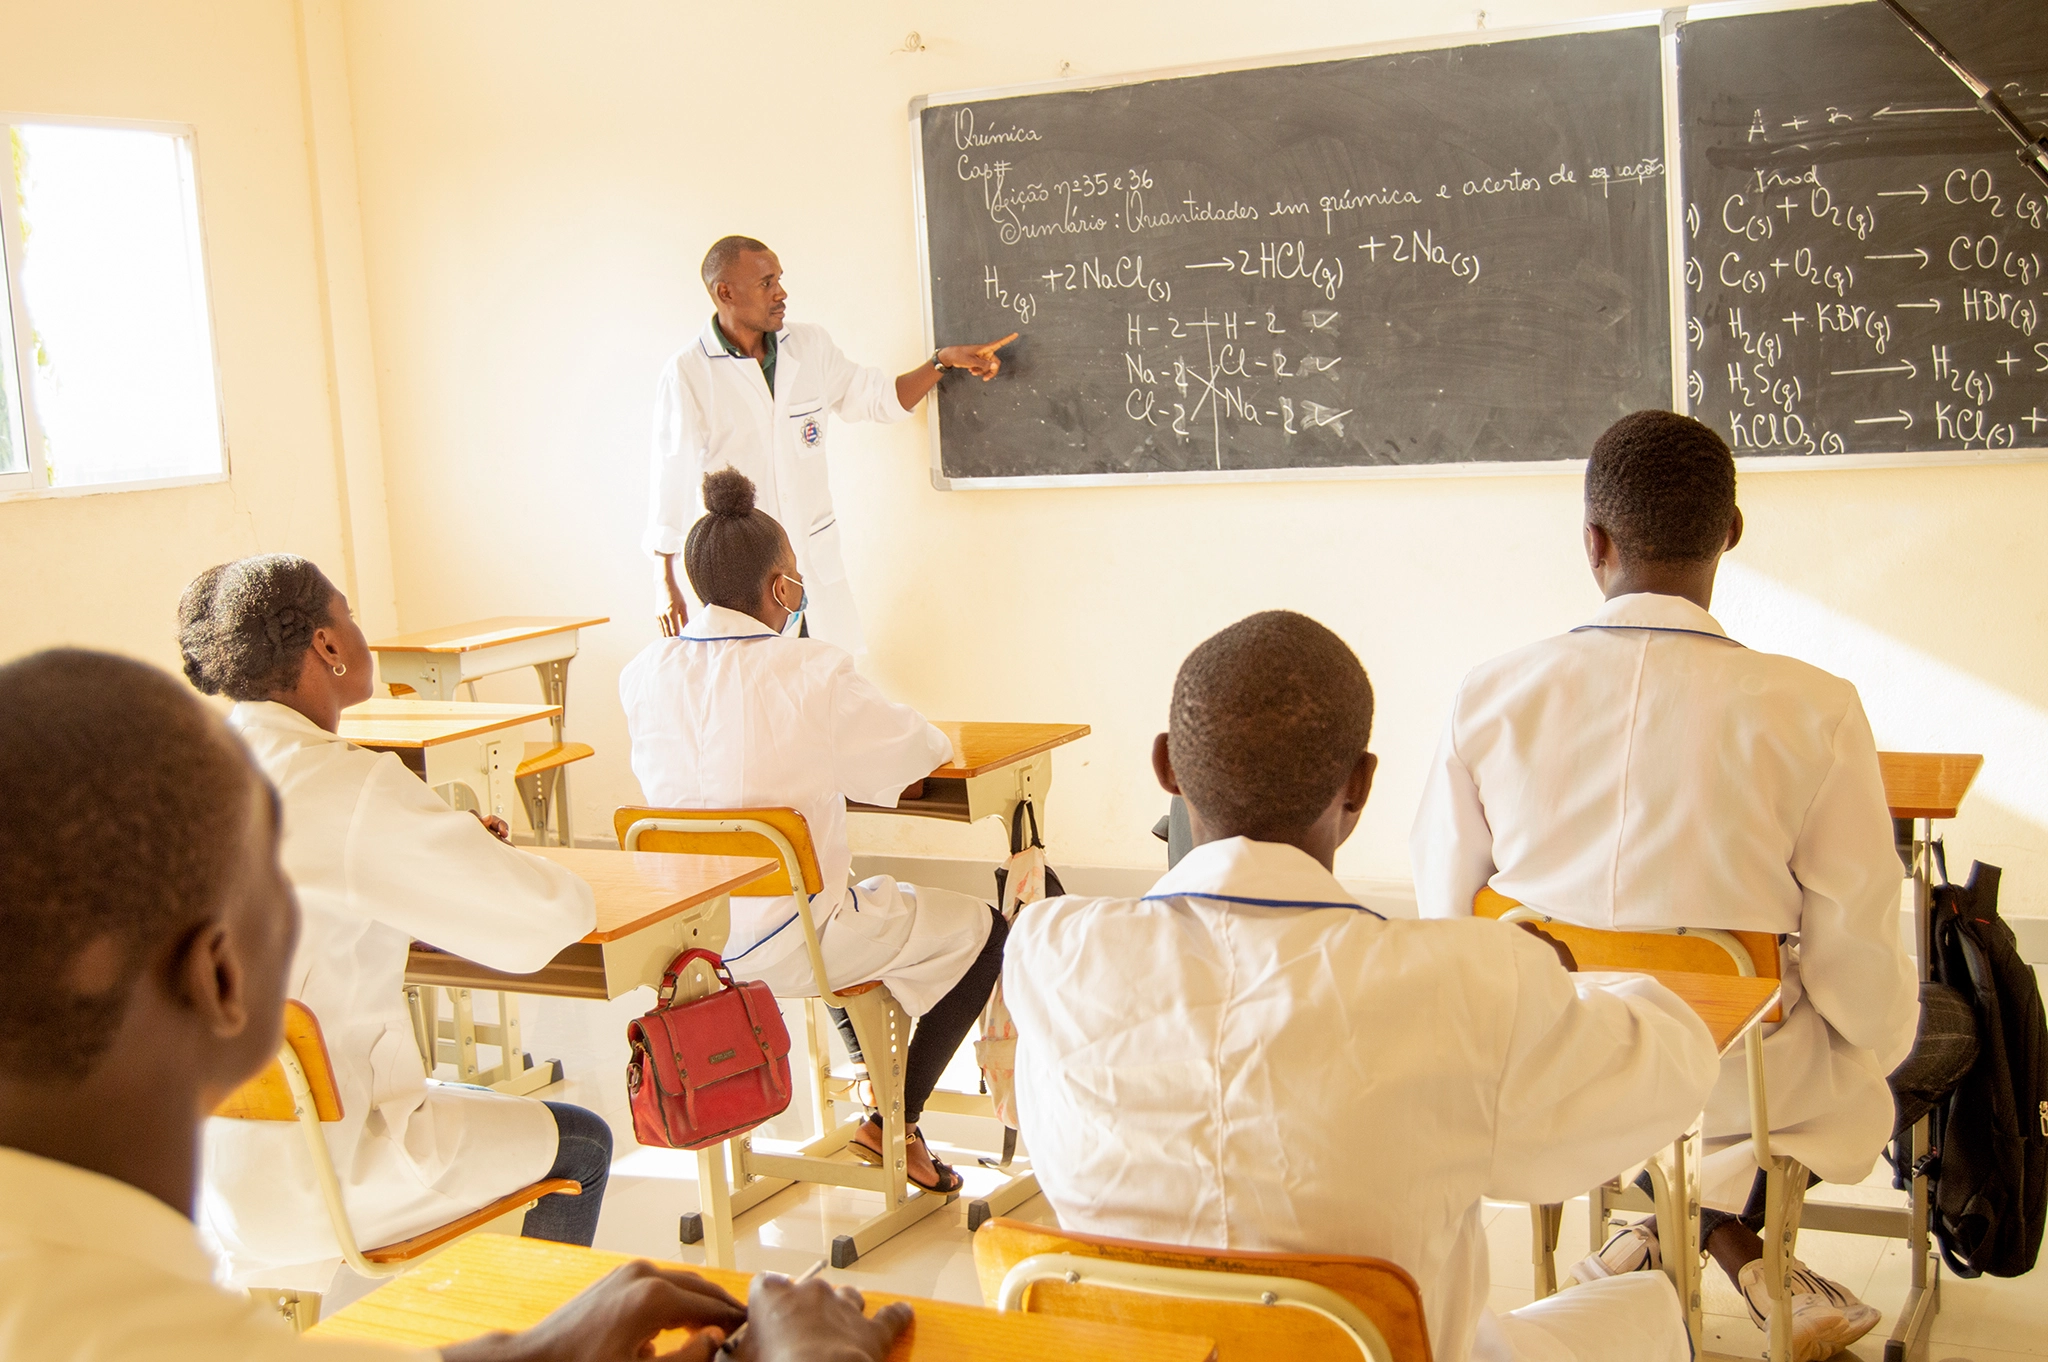 Química
Cap#
Leição nº 35 e 36
Sumário: Quantidades em química e acertos de equações
H2(g) + 2NaCl(s) → 2HCl(g) + 2Na(s)
H - 2 H - 2 ✓
Na - 2 Cl - 2 ✓
Cl - 2 Na - 2 ✓
A +
1) C(s) + O2(g) → CO2(g)
2) C(s) + O2(g) → CO(g)
3) H2(g) + KBr(g) → HBr(g) +
3) H2S(g) → H2(g) + S
KClO3(s) → KCl(s) +